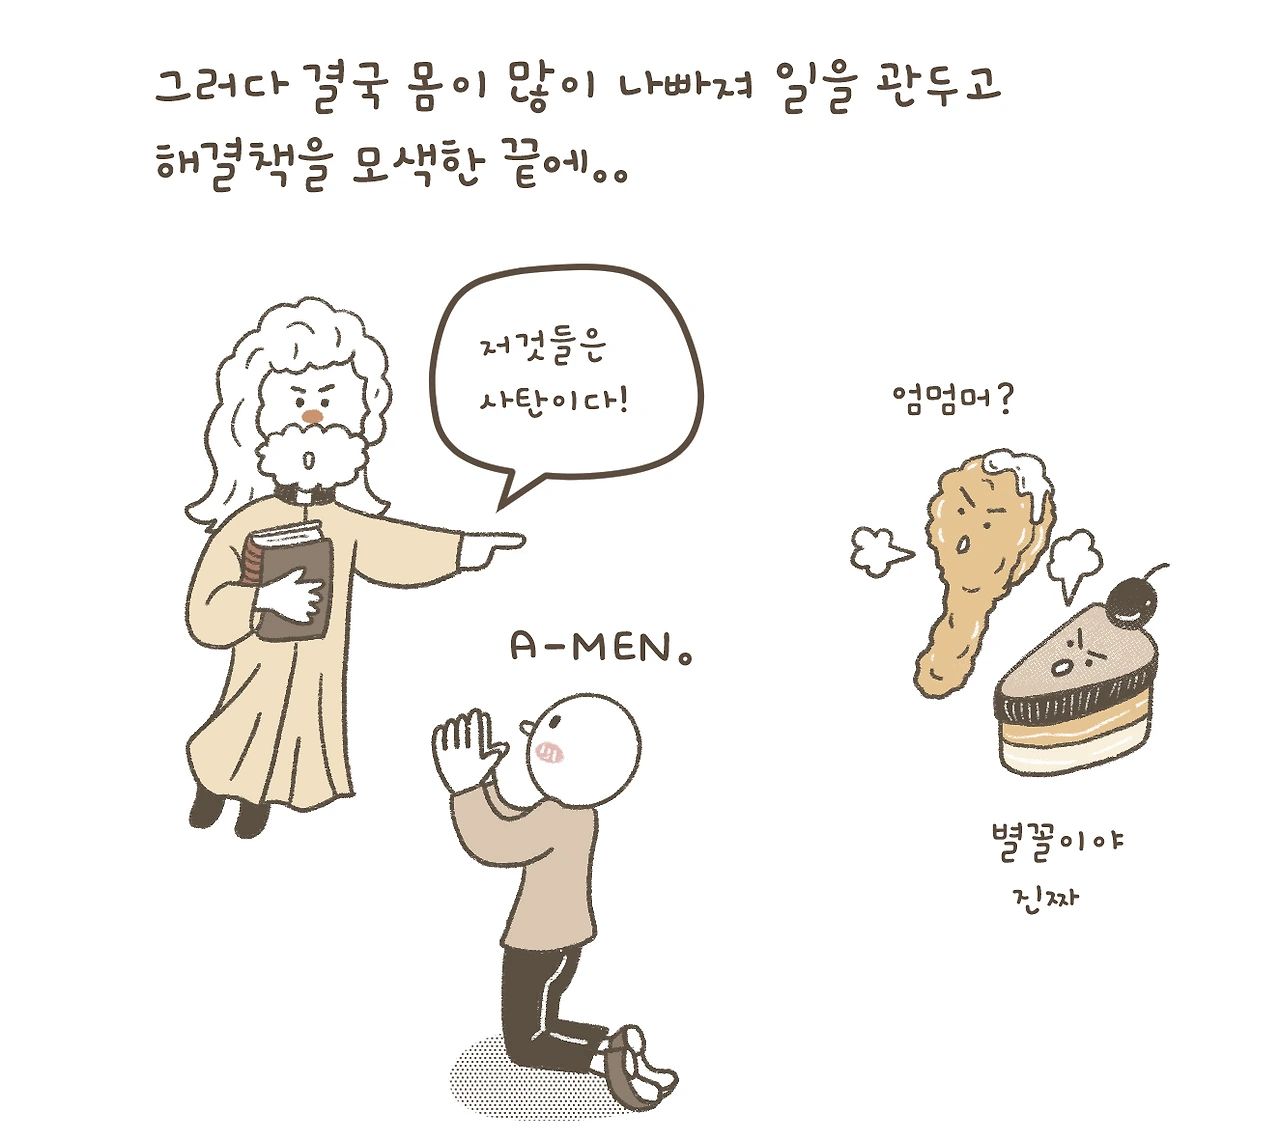 그러다 결국 몸이 많이 나빠져 일을 관두고
해결책을 모색한 끝에..
저것들은
사탄이다!
엄멈머?
A-MEN.
별꼴이야
진짜